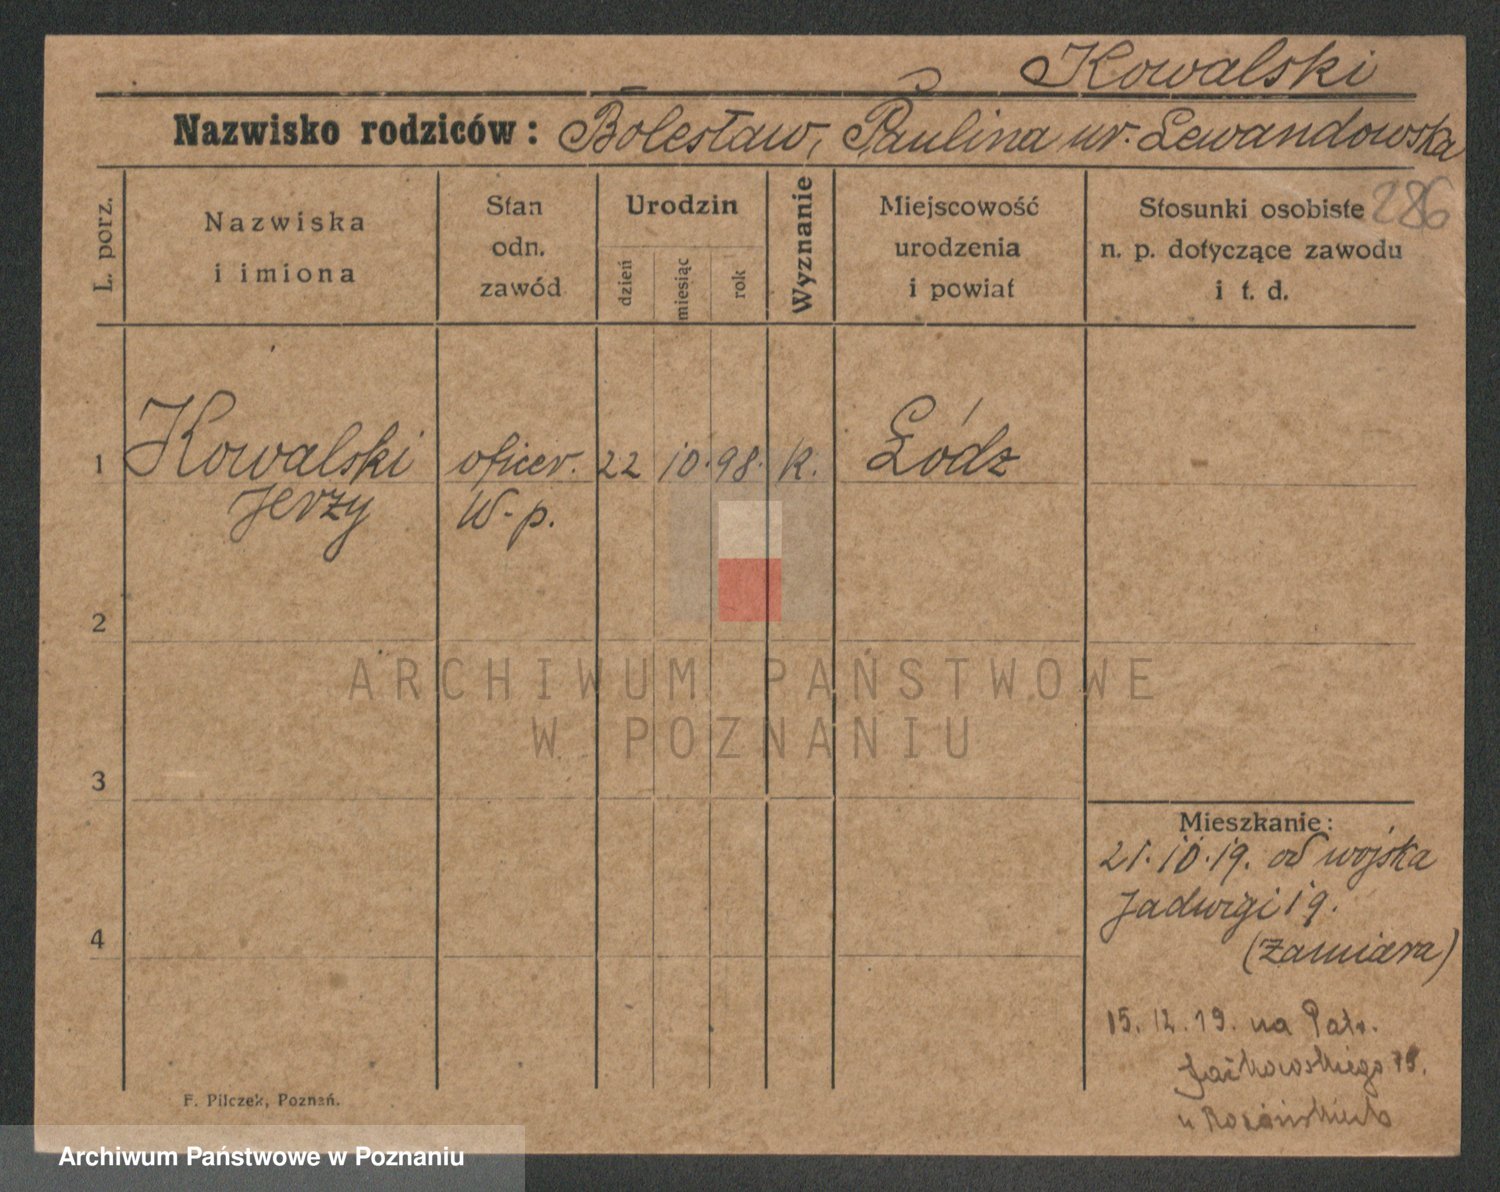 Kowalski
Nazwisko rodziców: Bolesław, Paulina ur. Lewandowska
286
L. porz.
Nazwiska
i imiona
Stan
odn.
zawód
Urodzin
dzień
miesiąc
rok
Wyznanie
Miejscowość
urodzenia
i powiat
Stosunki osobiste
n. p. dotyczące zawodu
i t. d.
1 Kowalski oficer. 22 10. 98. K. Łódz
Jerzy W. p.
2
3
4
Mieszkanie:
21.10.19. od wojska
Jadwigi 19.
(Zamiara)
15. 12. 19. na Patr.
Jackowskiego
u
F. Pilczek, Poznań.
ARCHIWUM PAŃSTWOWE
W POZNANIU
Archiwum Państwowe w Poznaniu